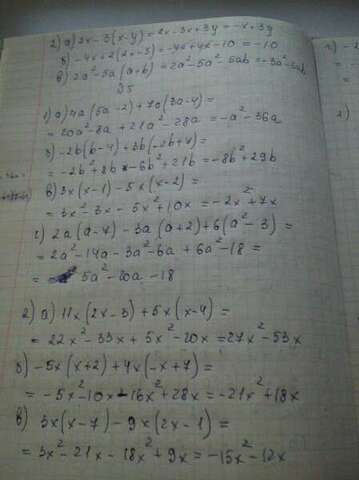 2) а) 2x - 3(x - y) = 2x - 3x + 3y = -x + 3y
б) -4x + 2(2x - 5) = -4x + 4x - 10 = -10
в) 2a² - 5a(a + b) = 2a² - 5a² - 5ab = -3a² - 5ab
1) а) 4a(5a - 2) + 7a(3a - 4) =
= 20a² - 8a + 21a² - 28a = -a² - 36a
б) -2b(b - 4) + 3b(-2b + 7) =
= -2b² + 8b - 6b² + 21b = -8b² + 29b
в) 3x(x - 1) - 5x(x - 2) =
= 3x² - 3x - 5x² + 10x = -2x² + 7x
г) 2a(a - 7) - 3a(a + 2) + 6(a² - 3) =
= 2a² - 14a - 3a² - 6a + 6a² - 18 =
= 5a² - 20a - 18
2) а) 11x(2x - 3) + 5x(x - 4) =
= 22x² - 33x + 5x² - 20x = 27x² - 53x
б) -5x(x + 2) + 4x(-x + 7) =
= -5x² - 10x - 16x² + 28x = -21x² + 18x
в) 3x(x - 7) - 9x(2x - 1) =
= 3x² - 21x - 18x² + 9x = -15x² - 12x